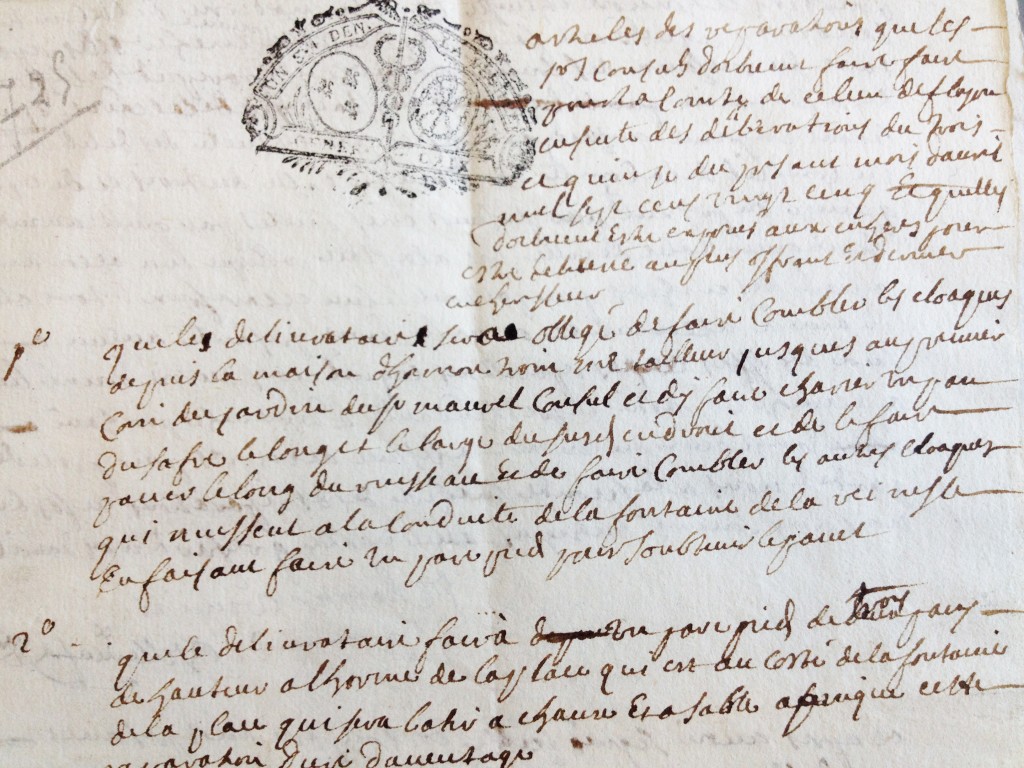 articles des reparations que les
srs Consuls doibvent faire faire
pour la Comté de ce lieu de flayosc
ensuite des délibérations du trois
et quinze du present mois davril
mil sept cens vingt cinq Et quelles
doibvent Estre exposés aux encheres pour
estre delivré au plus offrant et dernier
encherisseur
1o que le delivrataire sera obligé de faire Combler les cloaques
depuis la maison tailleur jusques au premier
Coin du jardin du sr maurel Consul et dy faire charrier un pan
du safre le long et le large du susd endroit et de le faire
paver le long du ruisseau Et de faire Combler les autres cloaques
qui nuissent a la Conduite de la fontaine de la
En faisant faire un pare pied pour soubtenir le pavet
2o que le delivrataire faira un pare pied de trois pans
de hauteur a lhorme de la place qui est au costé de la fontaine
de la place qui sera bastie a chaux Et a sable afin que cette
reparation dure davantage